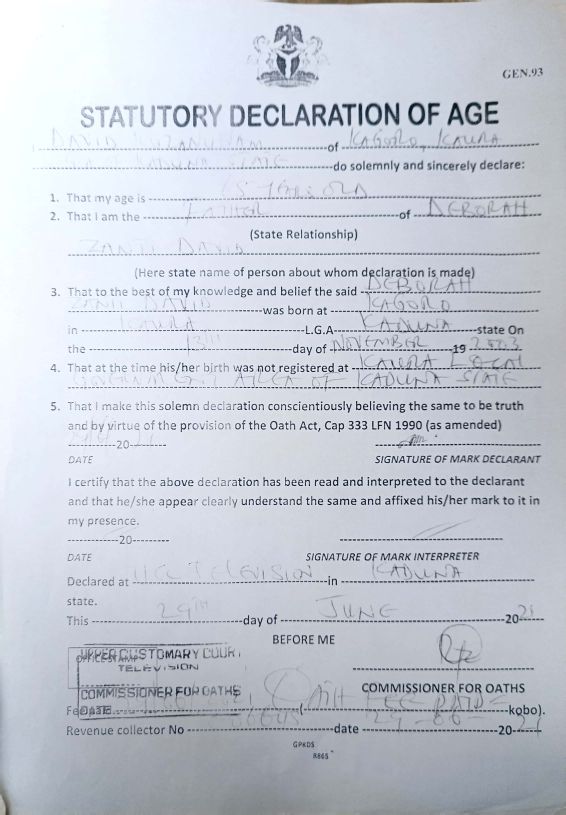 GEN.93
STATUTORY DECLARATION OF AGE
DAVID of KAGORO, KAURA
KADUNA STATE do solemnly and sincerely declare:
1. That my age is YEARS OLD
2. That I am the FATHER of DEBORAH
(State Relationship)
DAVID
(Here state name of person about whom declaration is made)
3. That to the best of my knowledge and belief the said DEBORAH
DAVID was born at KAGORO
in KAURA L.G.A KADUNA state On
the 13TH day of NOVEMBER 19 2003
4. That at the time his/her birth was not registered at KAURA LOCAL
GOVERNMENT AREA OF KADUNA STATE
5. That I make this solemn declaration conscientiously believing the same to be truth
and by virtue of the provision of the Oath Act, Cap 333 LFN 1990 (as amended)
20
DATE SIGNATURE OF MARK DECLARANT
I certify that the above declaration has been read and interpreted to the declarant
and that he/she appear clearly understand the same and affixed his/her mark to it in
my presence.
20
DATE SIGNATURE OF MARK INTERPRETER
Declared at UCC TELEVISION in KADUNA
state.
This 29TH day of JUNE 2021
BEFORE ME
UPPER CUSTOMARY COURT
TELEVISION
COMMISSIONER FOR OATHS COMMISSIONER FOR OATHS
DATE kobo).
Revenue collector No date 29-06- 20 21
GPKDS
R865